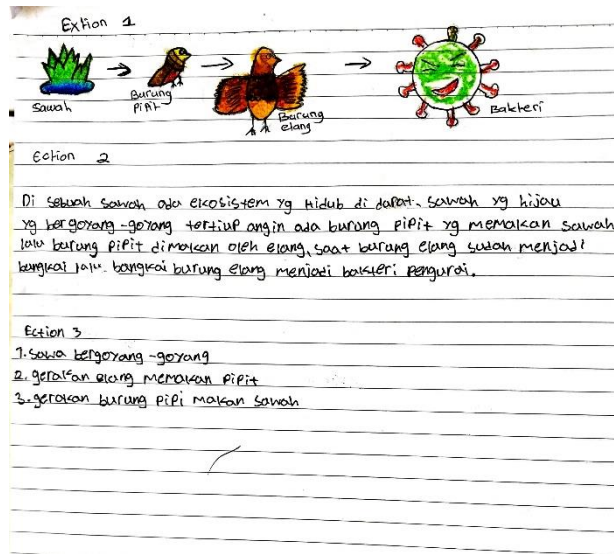 Extion 1
Sawah
Burung
Pipit
Burung
elang
Bakteri
Ection 2
Di sebuah sawah ada ekosistem yg Hidub di darat. sawah yg hijau
yg bergoyang-goyang tertiup angin ada burung pipit yg memakan sawah
lalu burung pipit dimakan oleh elang, saat burung elang sudah menjadi
bangkai lalu bangkai burung elang menjadi bakteri pengurai.
Ection 3
1. sawa bergoyang-goyang
2. gerakan elang memakan pipit
3. gerakan burung pipi makan sawah